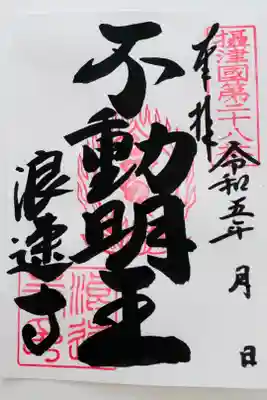 攝津國第二十八
奉拝
令和五年 月 日
不動明王
浪速寺